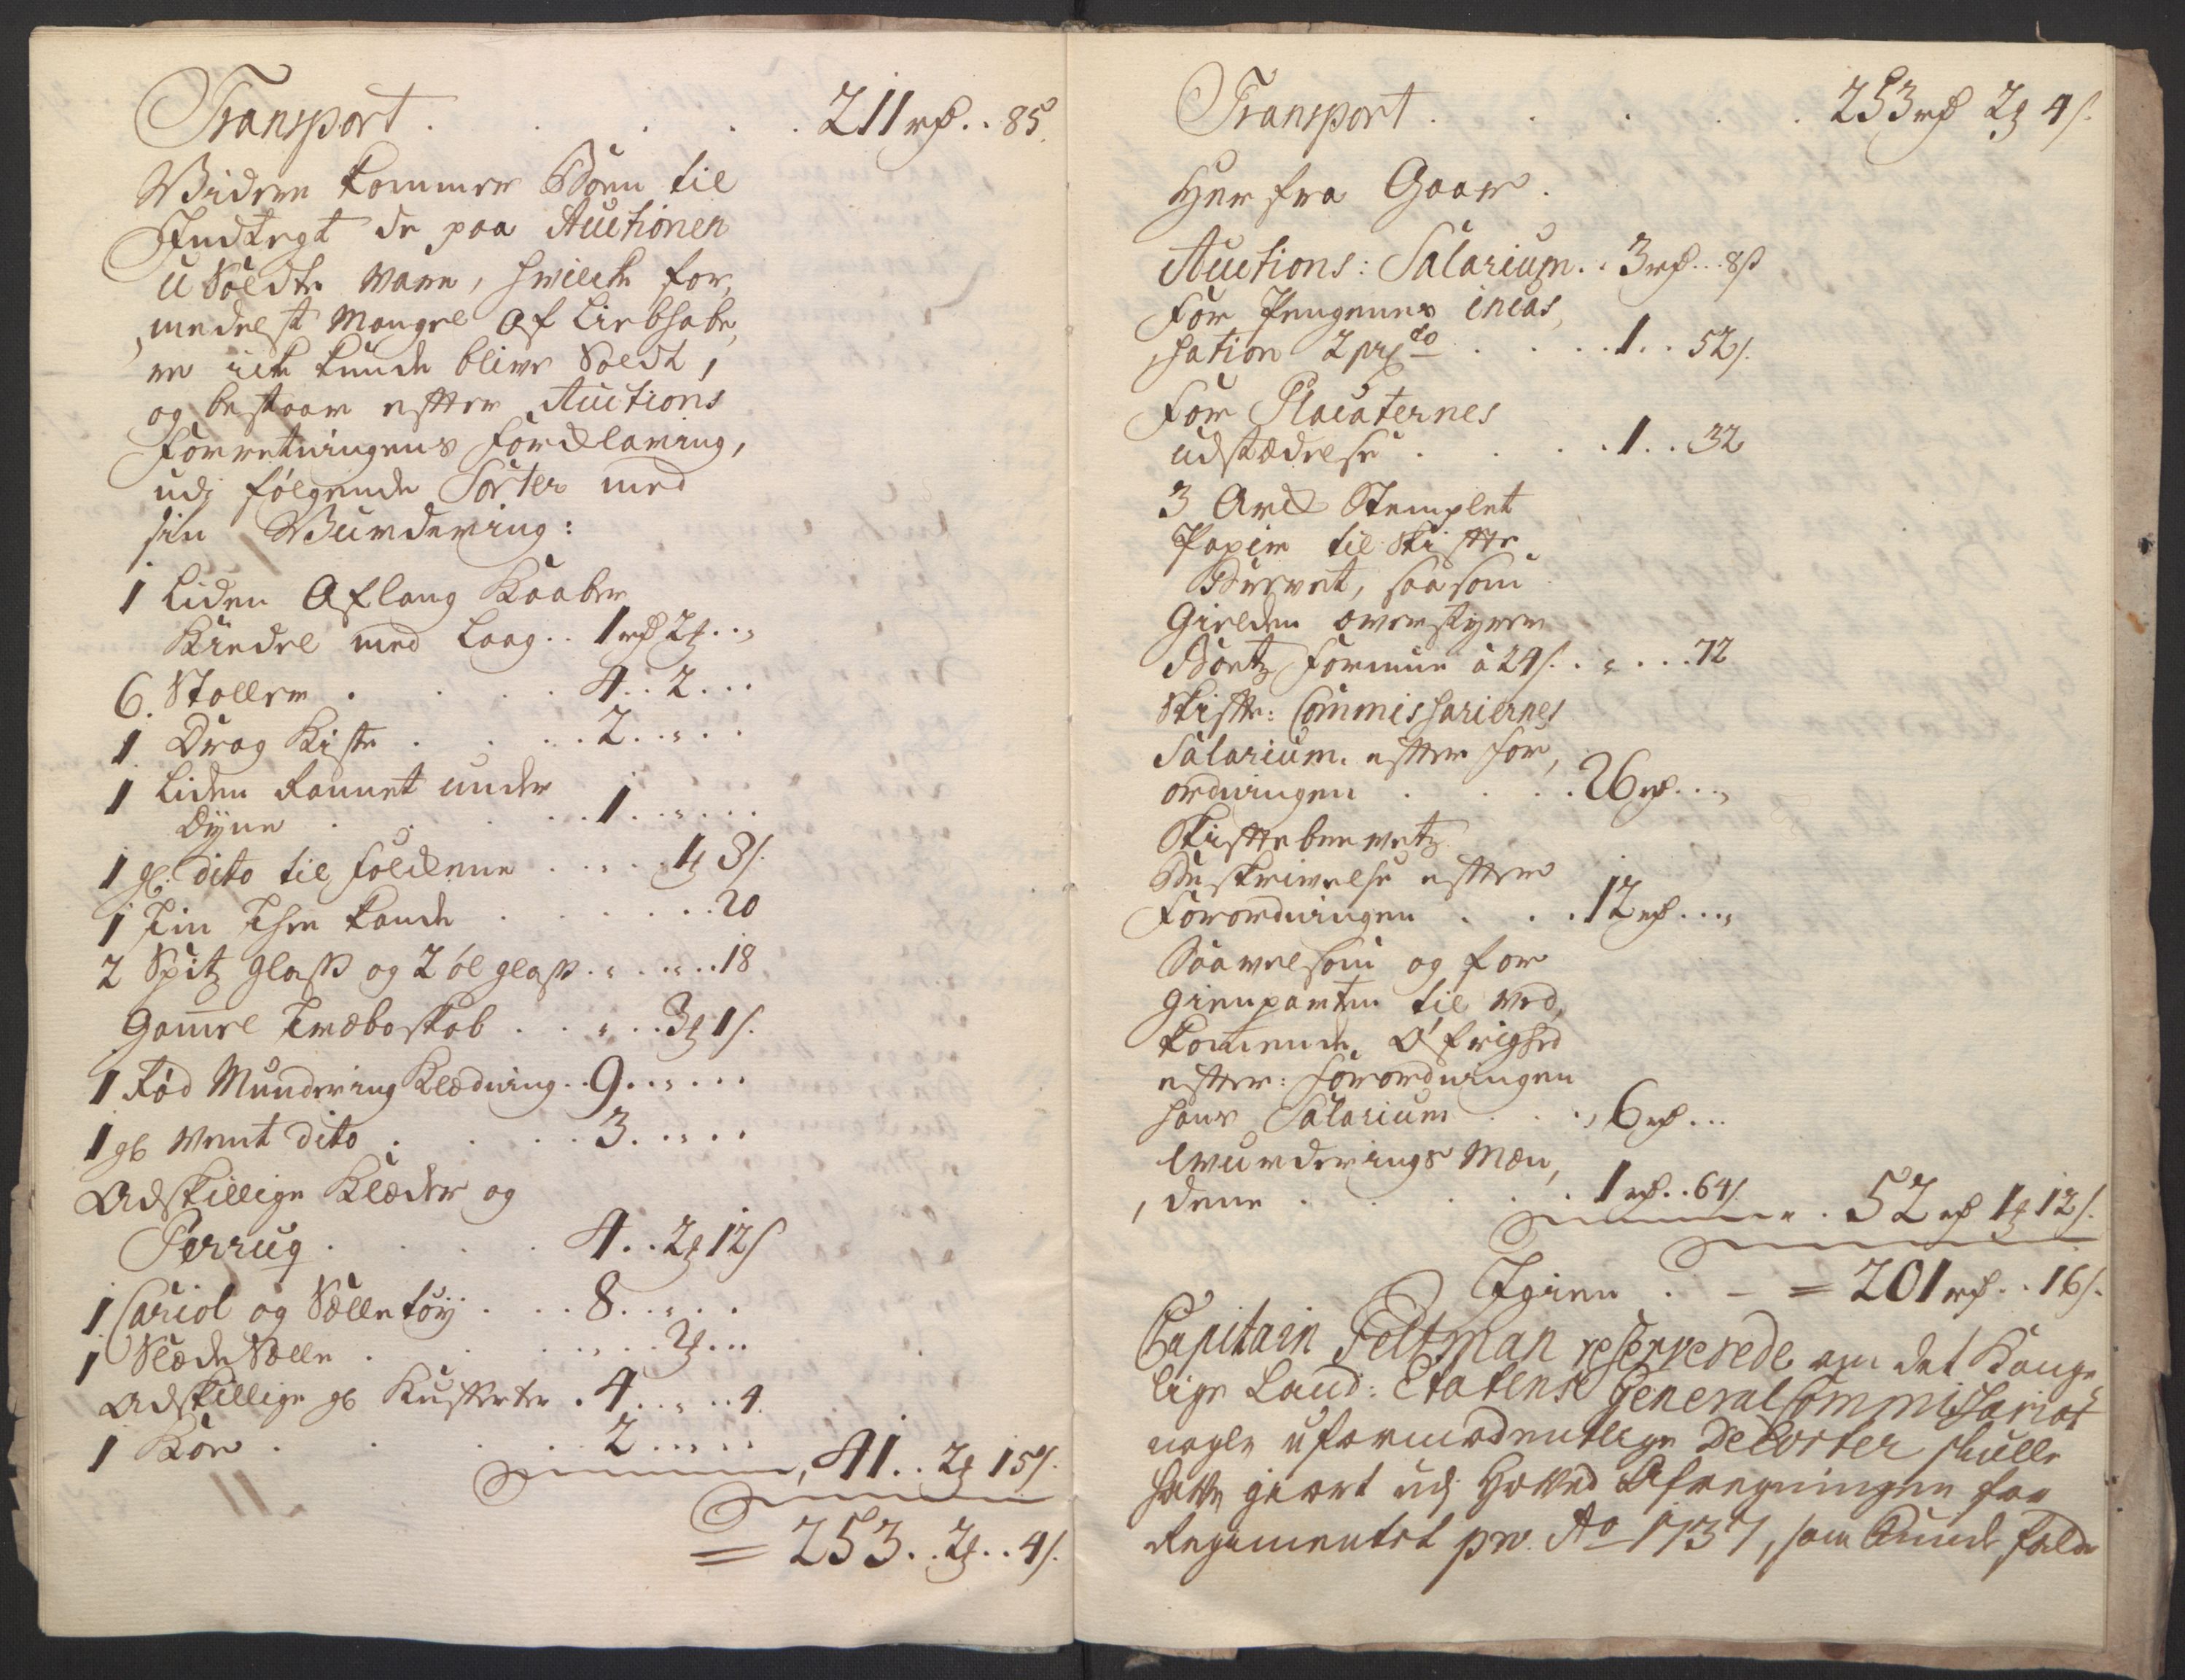 Transport . . . . . 211 rd. . 85.
Videre kommer Boen til
Indtegt de paa Auctionen
u Soldte vare, hvilcke for,
,medelst Mangel af Liebhabe,
re icke kunde blive Soldt,
og bestaar efter Auctions
Forretningens Forklaring,
udj følgende Sorter med
sin Vurdering:
1 Liden Aflang Kaaber
Kiedel med Laag . . 1 rd 2 ₰ . . „
6. Stoller . . . . 4. . 2 . . .
1 Drag Kiste . . . . 2. . „ . .
1 Liden Rannet under
Dyne . . . . 1. . „ . . .
1 gl. dito til Foldene . . „ . . 1 ₰ 3 s.
1 Tin Thee kande . . . . . . 20
2 Spitz Glass og 2 øl glass . „ . „ . . 18
Gammel Træboskab . . „ . . 3 ₰ 1 s.
1 Rød Mundering Klædning . . 9. . „ . . .
1 gl vent dito . . . . 3. . „ . .
Adskillige Klæder og
Perruq . . . . 4. . 2 ₰ 12 s
1 Cariol og Selletøy . . . 8. . „ . .
1 Slæde Sælle . . . . „ . . 2 ₰ . . .
Adskillige gl Kufferter . 4. . „ . . 4.
1 Koe . . . . 2 . . „ . .
, 41. . 2 ₰ 15 s.
= 253. . 2 ₰ . . 4 s.
Transport . . . . . 253 rd 2 ₰ 4 s.
Her fra Gaar.
Auctions: Salarium. . 3 rd . . 8 s
For Pengenes incas,
,sation 2 pr Co . . . . 1. . 52 s.
For Placaternes
udstædelse . . . . 1. . 32
3 Ark Stemplet
Papir til Skiffte
Brevet, saasom
Gielden overstyrer
Boetz Formue à 24 s. . „ . . . 72
Skiffte: Commissariernes
Salarium. efter For,
ordningen . . . . 26 rd . . „
Skifftebrevetz
Beskrivelse efter
Forordningen . . . 12 rd . . „
Saavelsom og for
Gienparten til ved,
kommende Øfrighed
efter: Forordningen
hans Salarium . . . , 6 rd . . .
Vurderings Mæn,
,dene . . . . . 1 rd . . 64 s.
. 52 rd 1 ₰ 12 s.
Igien . - = 201 rd . . 16 s.
Capitain Feltman reserverede om det Konge
lige Land: Etatens General Commissariat
nogle uformodentlige Decorter skulle
hafve giort udj Hoved Afregningen for
Regimentet pro Ao 1737, som Kunde falde